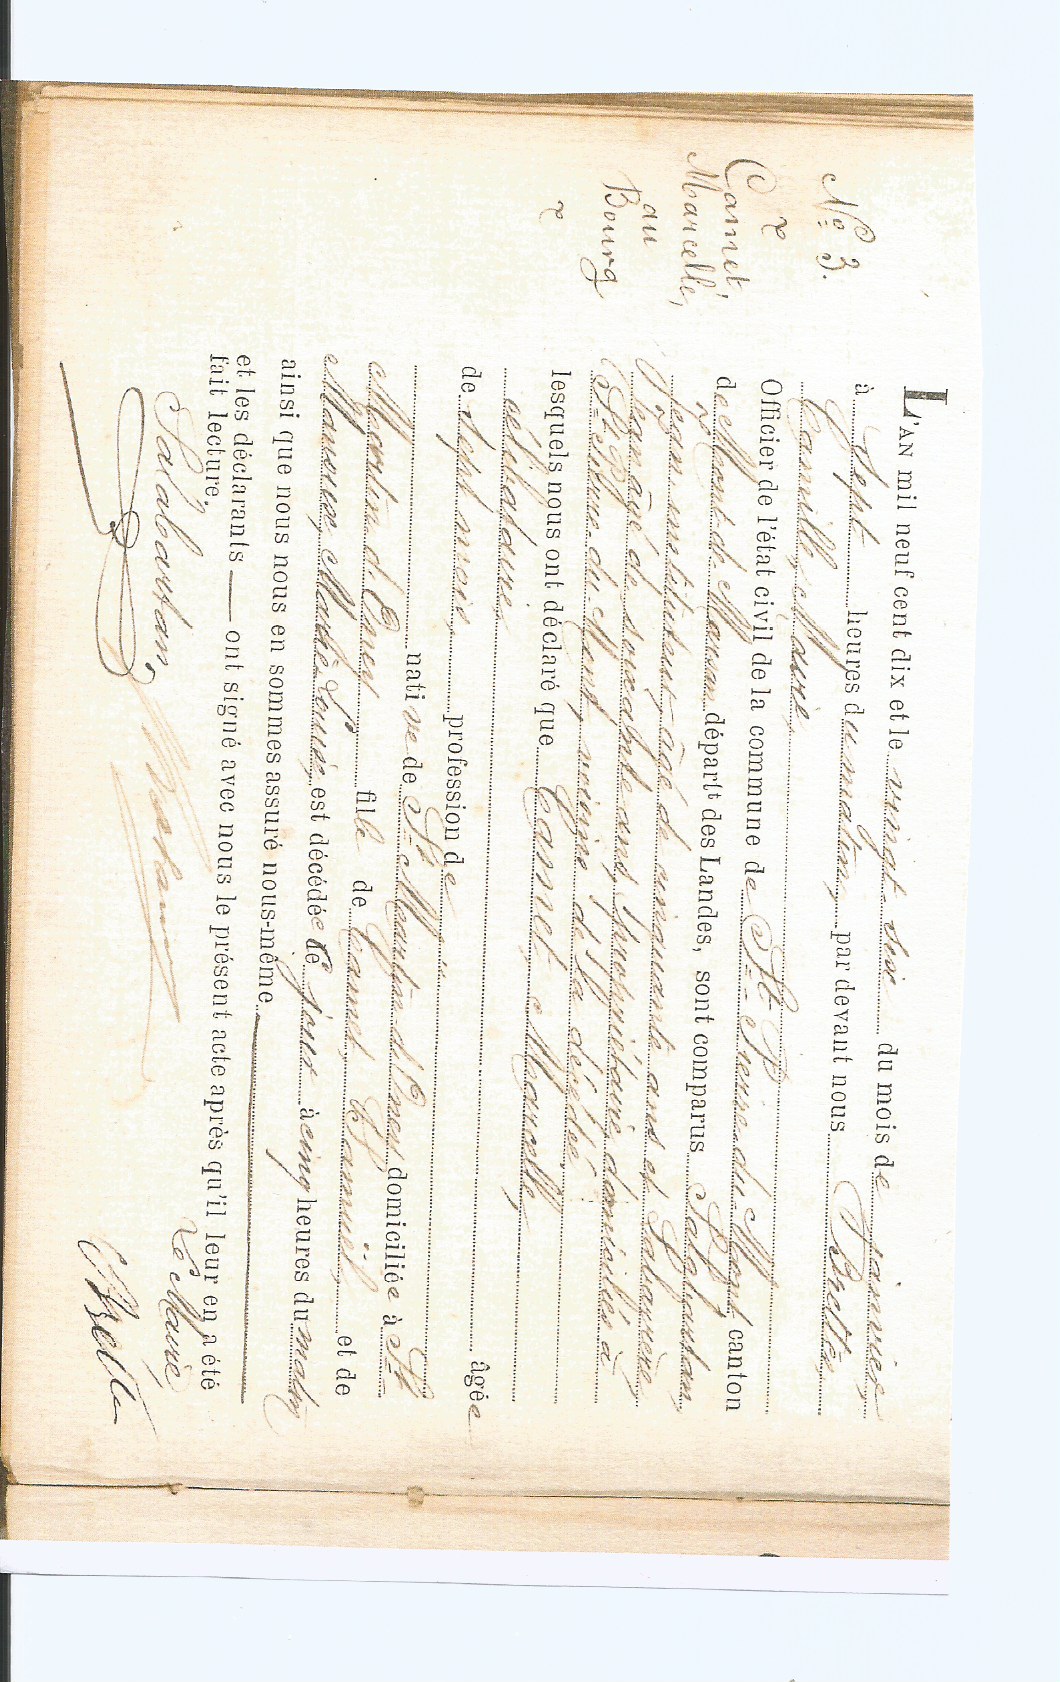 N° 3.
Cannet,
Marcelle,
au
Bourg
L'AN mil neuf cent dix et le vingt-six du mois de janvier
à sept heures du matin, par devant nous Brettes,
Camille, Maire,
Officier de l'état civil de la commune de St Pierre-du-Mont canton
de Mont-de-Marsan départt des Landes, sont comparus Salabartan,
Jean, instituteur, âgé de cinquante ans et
Jean, âgé de soixante ans, propriétaire, domiciliés à
St Pierre-du-Mont, voisins de la décédée
lesquels nous ont déclaré que Cannet, Marcelle,
célibataire,
âgée
de sept mois, profession de "
native de St Martin-d'Oney domiciliée à St
Martin d'Oney fille de Cannet et de
Marie Louise, est décédée ce jour à cinq heures du matin
ainsi que nous nous en sommes assuré nous-même
et les déclarants — ont signé avec nous le présent acte après qu'il leur en a été
fait lecture.
Salabartan,
Le Maire,